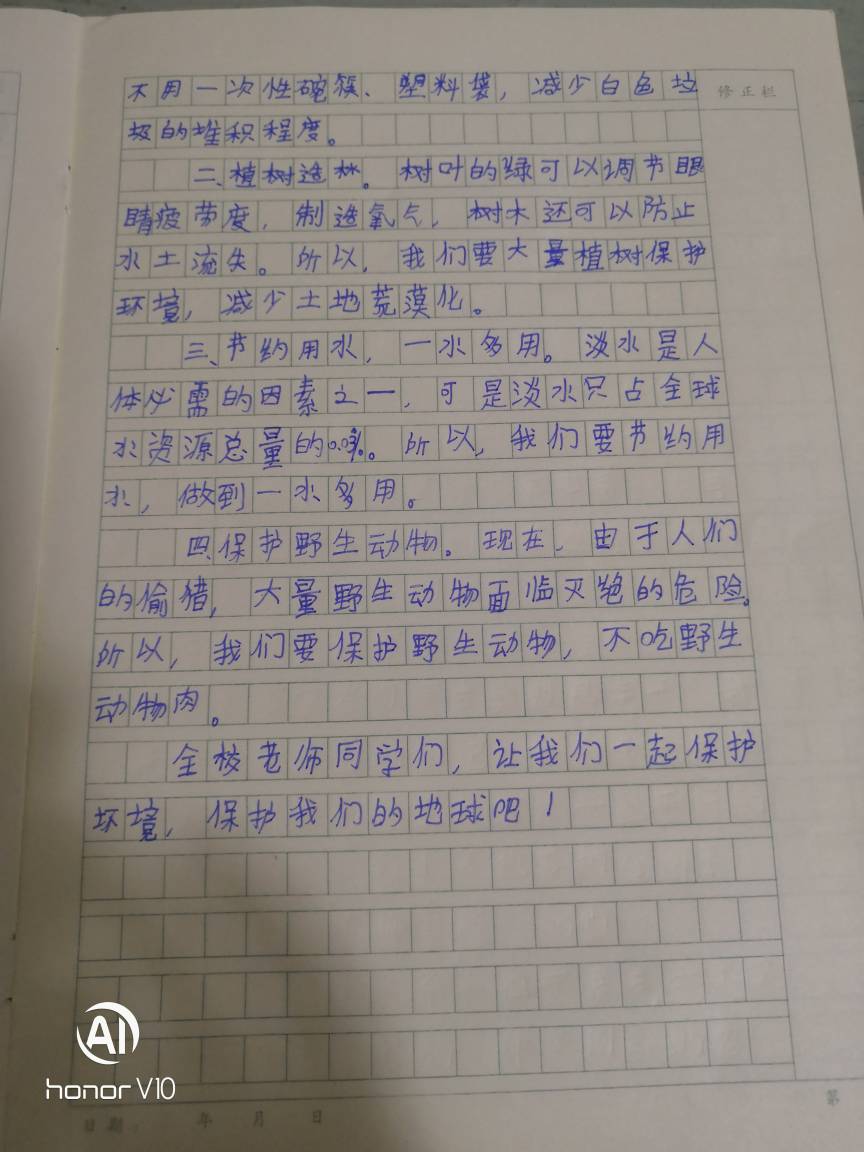 不用一次性碗筷、塑料袋，减少白色垃
修正栏
圾的堆积程度。
二、植树造林。树叶的绿可以调节眼
睛疲劳度，制造氧气，树木还可以防止
水土流失。所以，我们要大量植树保护
环境，减少土地荒漠化。
三、节约用水，一水多用。淡水是人
体必需的因素之一，可是淡水只占全球
水资源总量的。所以，我们要节约用
水，做到一水多用。
四、保护野生动物。现在，由于人们
的偷猎，大量野生动物面临灭绝的危险。
所以，我们要保护野生动物，不吃野生
动物肉。
全校老师同学们，让我们一起保护
环境，保护我们的地球吧！
AI
honor V10
第
日期： 年 月 日